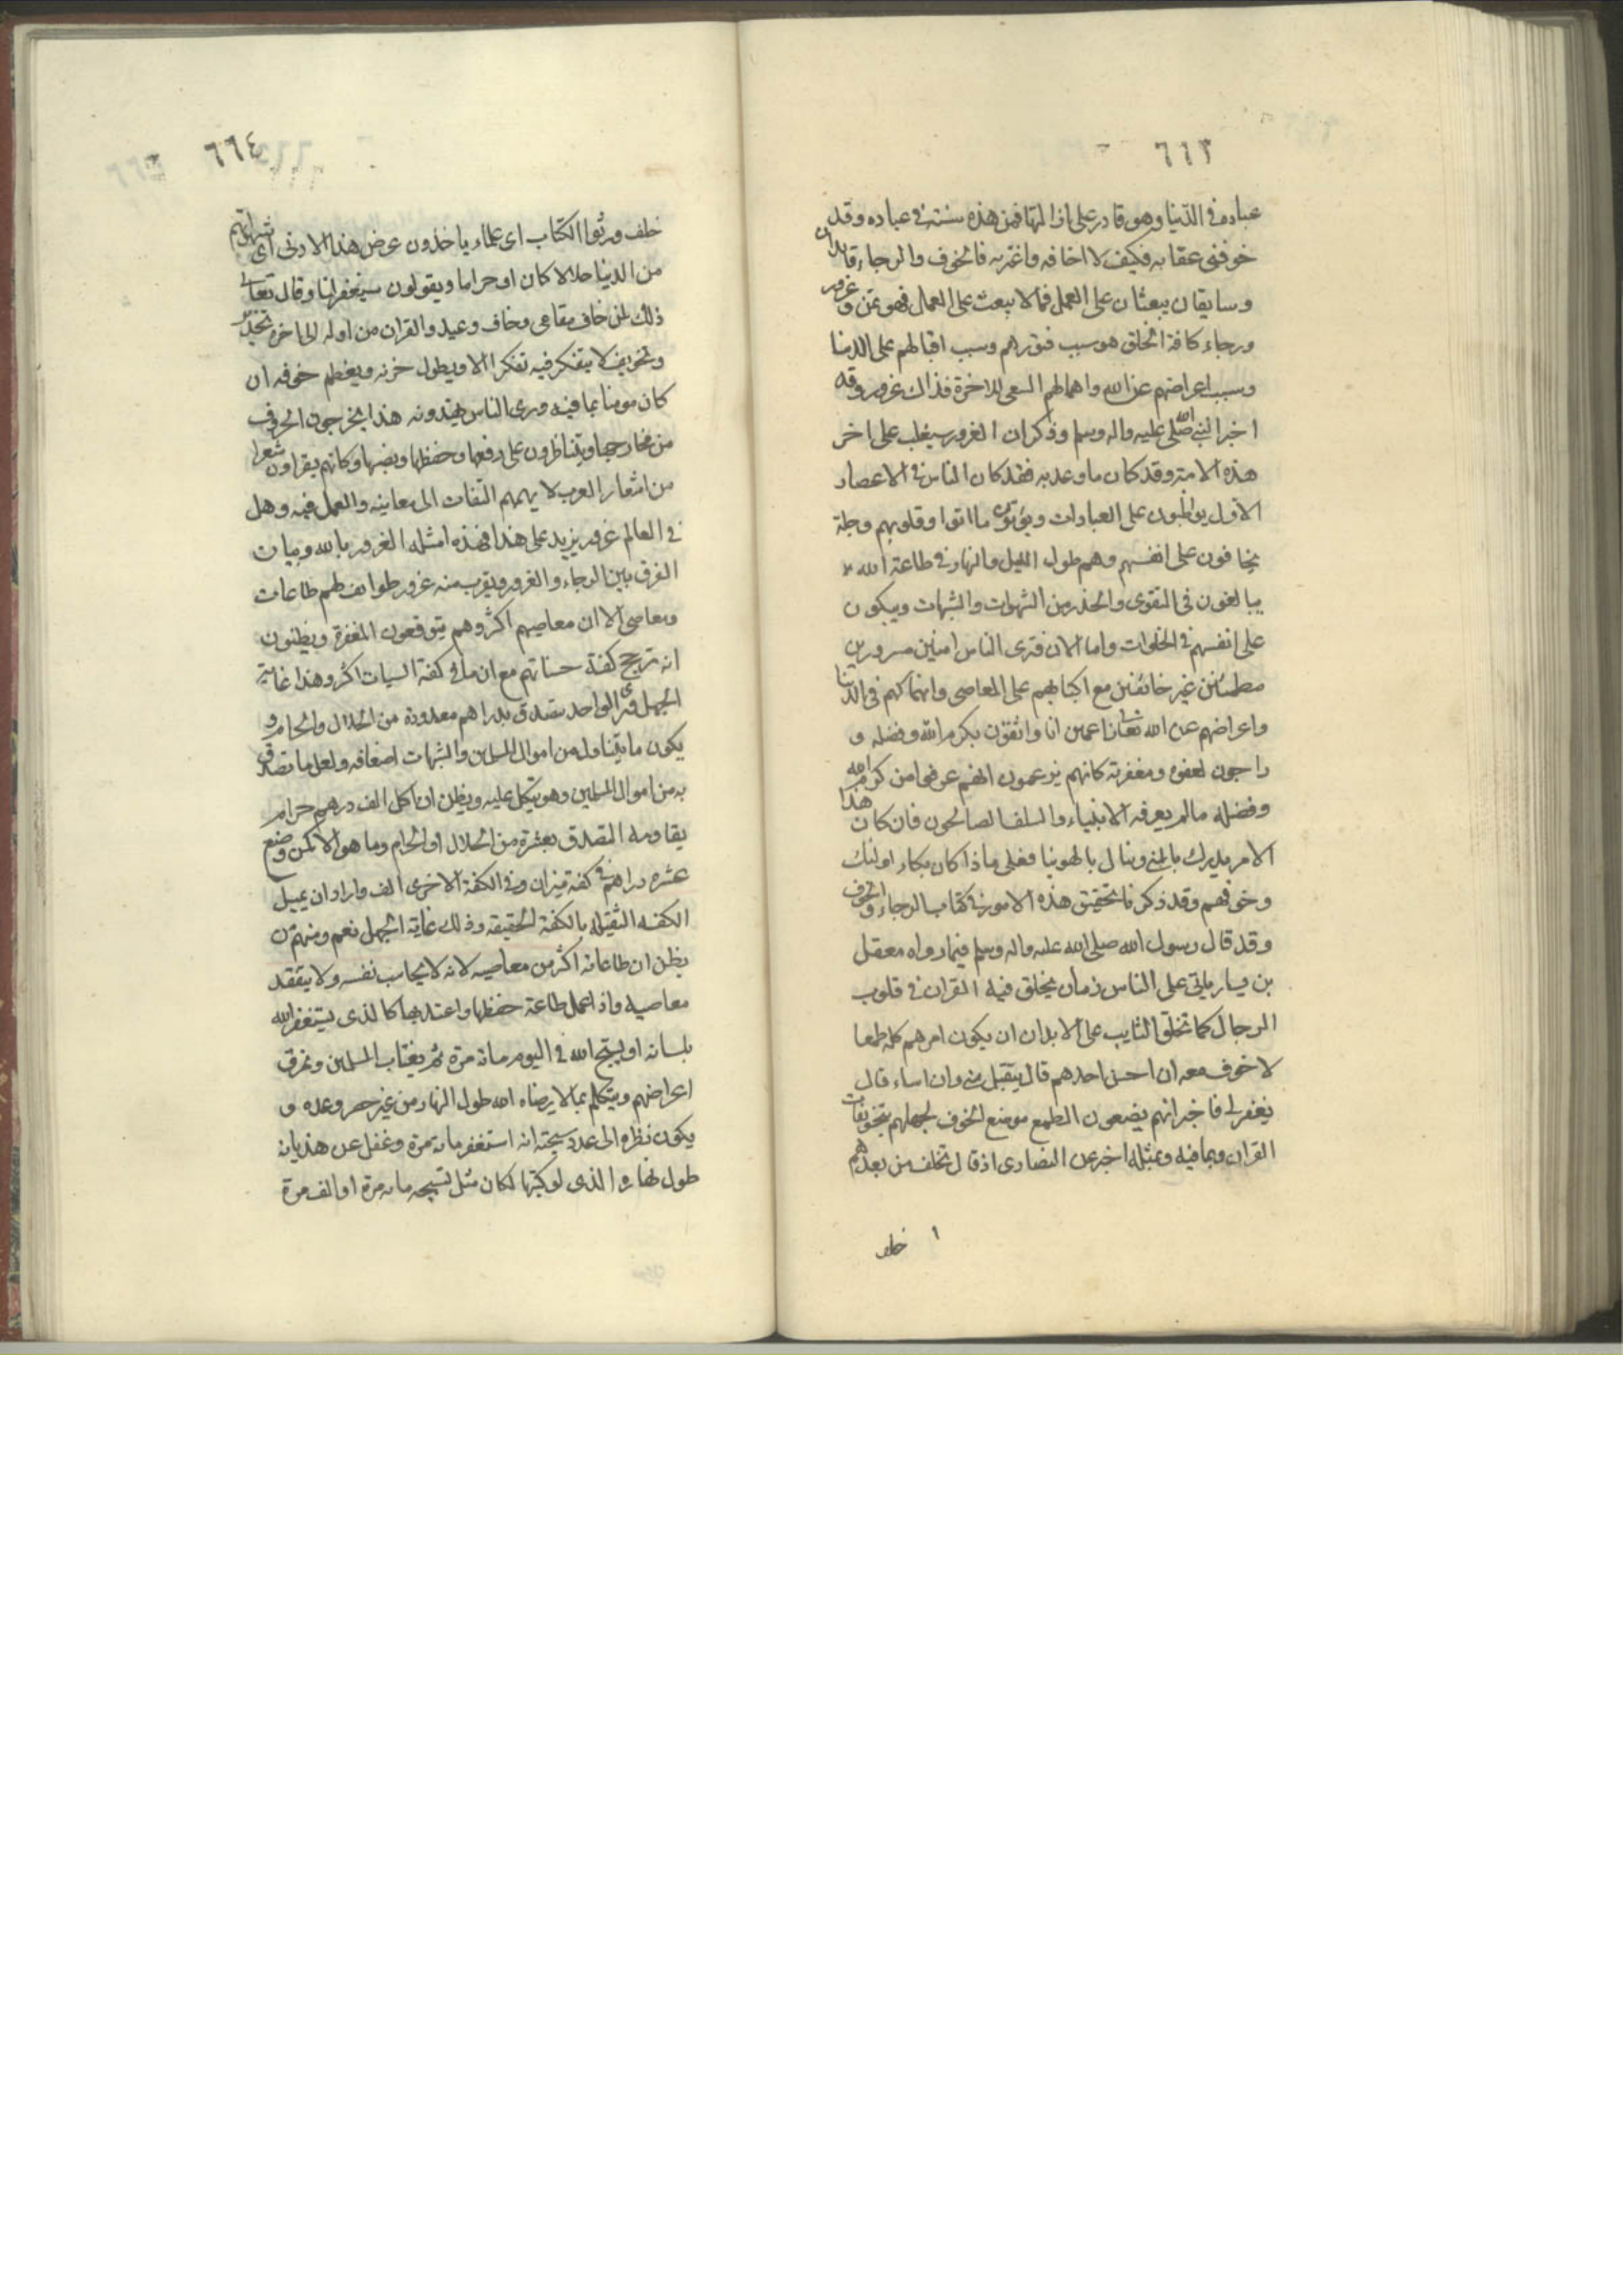 ٦٦٣
عباده في الدّنيا وهو قادر على ازالتها فمن هذه سنته في عباده وقد
خوفنى عقابه فكيف لا اخافه واغتر به فالخوف والرجاء قائدان
وسايقان يبعثان على العمل فما لا يبعث على العمل فهو تمن وغرور
ورجاء كافة الخلق هو سبب فتورهم وسبب اقبالهم على الدنيا
وسبب اعراضهم عن الله واهمالهم السعى للاخرة فذاك غرور وقد
اخبر النبى صلى الله عليه واله وسلم وذكر ان الغرور سيغلب على اخر
هذه الامة وقد كان ما وعد به فقد كان الناس في الاعصار
الاول يواظبون على العبادات ويؤتون ما اتوا وقلوبهم وجلة
يخافون على انفسهم وهم طول الليل والنهار في طاعة الله
يبالغون فى التقوى والحذر من الشهوات والشبهات ويبكون
على انفسهم في الخلوات واما الان فترى الناس امنين مسرورين
مطمئنين غير خائفين مع اكبابهم على المعاصى وانهماكهم فى الدنيا
واعراضهم عن الله تعالى زاعمين انا واثقون بكرم الله وفضله و
راجون لعفوه ومغفرته كانهم يزعمون انهم عرفوا من كرم الله
وفضله ما لم يعرفه الانبياء والسلف الصالحون فان كان هذا
الامر يدرك بالمنى وينال بالهوينا فعلى ماذا كان بكاء اولئك
وخوفهم وقد ذكرنا تحقيق هذه الامور في كتاب الرجاء والخوف
وقد قال رسول الله صلى الله عليه واله وسلم فيما رواه معقل
بن يسار ياتى على الناس زمان يخلق فيه القران في قلوب
الرجال كما تخلق الثايب على الابدان ان يكون امرهم كله طمعا
لا خوف معه ان احسن احدهم قال يتقبل منى وان اساء قال
يغفر لى فاخبر انهم يضعون الطمع موضع الخوف لجهلهم بتخويفات
القران وبما فيه وبمثله اخبر عن النصارى اذ قال تخلف من بعدهم
خلف
٦٦٤
خلف ورثوا الكتاب اى علماء ياخذون عرض هذا الادنى اى شهواتهم
من الدنيا حلالا كان او حراما ويقولون سيغفر لنا وقال تعالى
ذلك لمن خاف مقامى وخاف وعيد والقران من اوله الى اخره تحذير
وتخويف لا يتفكر فيه تفكرا الا ويطول حزنه ويعظم خوفه ان
كان مومنا بما فيه وترى الناس يهذونه هذا يخرجون الحروف
من مخارجها ويتناظرون على رفعها وخفظها ونصبها وكانهم يقراون شعرا
من اشعار العرب لا يهمهم التفات الى معاينه والعمل فيه وهل
في العالم غرور يزيد على هذا فهذه امثله الغرور بالله وبيان
الفرق بين الرجاء والغرور ويقرب منه غرور طوائف لهم طاعات
ومعاصى الا ان معاصيهم اكثر وهم يتوقعون المغفرة ويظنون
انه ترجح كفة حسناتهم مع ان ما في كفة السيات اكثر وهذا غاية
الجهل فترى الواحد يتصدق بدراهم معدودة من الحلال والحرام و
يكون ما يتناول من اموال المسلمين والشبهات اضعافه ولعل ما تصدق
به من اموال المسلمين وهو يتكل عليه ويظن ان اكل الف درهم حرام
يقاومه التصدق بعشرة من الحلال او الحرام وما هو الا كمن وضع
عشره دراهم في كفة ميزان وفي الكفة الاخرى الف واراد ان يميل
الكفه الثقيله بالكفة الخفيفة وذلك غاية الجهل نعم ومنهم من
يظن ان طاعاته اكثر من معاصيه لانه لا يحاسب نفسه ولا يتفقد
معاصيه واذا عمل طاعة حفظها واعتد بها كالذى يستغفر الله
بلسانه او يسبح الله في اليوم مائة مرة ثم يغتاب المسلمين ويمزق
اعراضهم ويتكلم بما لا يرضاه الله طول النهار من غير حصر وعده و
يكون نظره الى عدد سبحته انه استغفر مائة مرة وغفل عن هذيانه
طول نهاره الذى لو كتبها لكان مثل تسبيحه مائه مرة او الف مرة